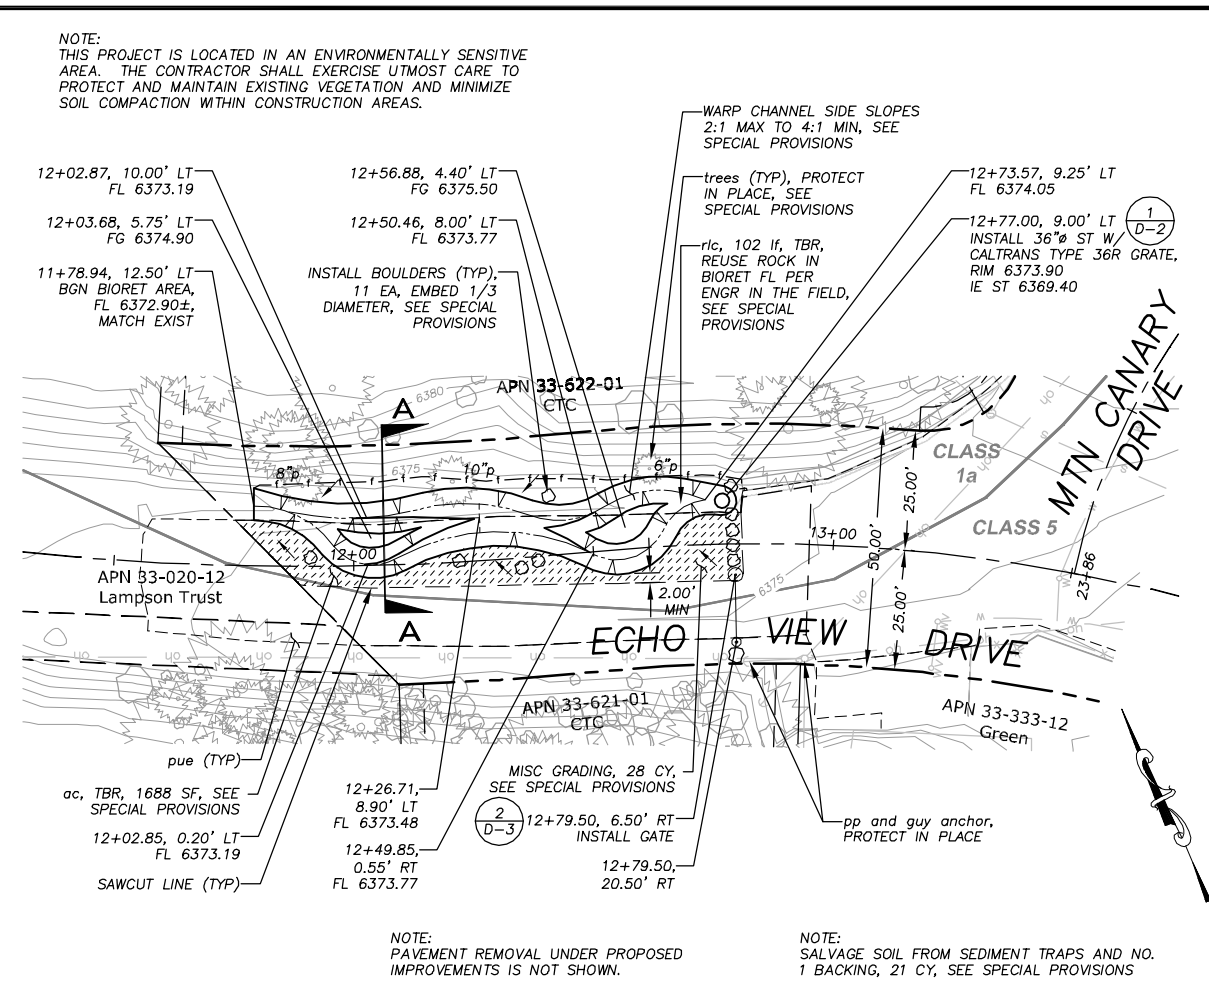 NOTE:
THIS PROJECT IS LOCATED IN AN ENVIRONMENTALLY SENSITIVE
AREA. THE CONTRACTOR SHALL EXERCISE UTMOST CARE TO
PROTECT AND MAINTAIN EXISTING VEGETATION AND MINIMIZE
SOIL COMPACTION WITHIN CONSTRUCTION AREAS.
WARP CHANNEL SIDE SLOPES
2:1 MAX TO 4:1 MIN, SEE
SPECIAL PROVISIONS
12+02.87, 10.00' LT
FL 6373.19
12+03.68, 5.75' LT
FG 6374.90
11+78.94, 12.50' LT
BGN BIORET AREA,
FL 6372.90±,
MATCH EXIST
12+56.88, 4.40' LT
FG 6375.50
12+50.46, 8.00' LT
FL 6373.77
INSTALL BOULDERS (TYP),
11 EA, EMBED 1/3
DIAMETER, SEE SPECIAL
PROVISIONS
trees (TYP), PROTECT
IN PLACE, SEE
SPECIAL PROVISIONS
rlc, 102 lf, TBR,
REUSE ROCK IN
BIORET FL PER
ENGR IN THE FIELD,
SEE SPECIAL
PROVISIONS
12+73.57, 9.25' LT
FL 6374.05
12+77.00, 9.00' LT
INSTALL 36"ø ST W/
CALTRANS TYPE 36R GRATE,
RIM 6373.90
IE ST 6369.40
1
D-2
MTN CANARY
DRIVE
APN 33-622-01
CTC
6380
A
6375
8"p
10"p
6"p
CLASS
1a
CLASS 5
25.00'
50.00'
25.00'
12+00
13+00
23+86
6375
APN 33-020-12
Lampson Trust
2.00'
MIN
A
ECHO VIEW DRIVE
oh
oh
oh
oh
oh
oh
oh
w
w
APN 33-621-01
CTC
APN 33-333-12
Green
pue (TYP)
ac, TBR, 1688 SF, SEE
SPECIAL PROVISIONS
12+02.85, 0.20' LT
FL 6373.19
SAWCUT LINE (TYP)
12+26.71,
8.90' LT
FL 6373.48
12+49.85,
0.55' RT
FL 6373.77
MISC GRADING, 28 CY,
SEE SPECIAL PROVISIONS
2
D-3
12+79.50, 6.50' RT
INSTALL GATE
12+79.50,
20.50' RT
pp and guy anchor,
PROTECT IN PLACE
NOTE:
PAVEMENT REMOVAL UNDER PROPOSED
IMPROVEMENTS IS NOT SHOWN.
NOTE:
SALVAGE SOIL FROM SEDIMENT TRAPS AND NO.
1 BACKING, 21 CY, SEE SPECIAL PROVISIONS